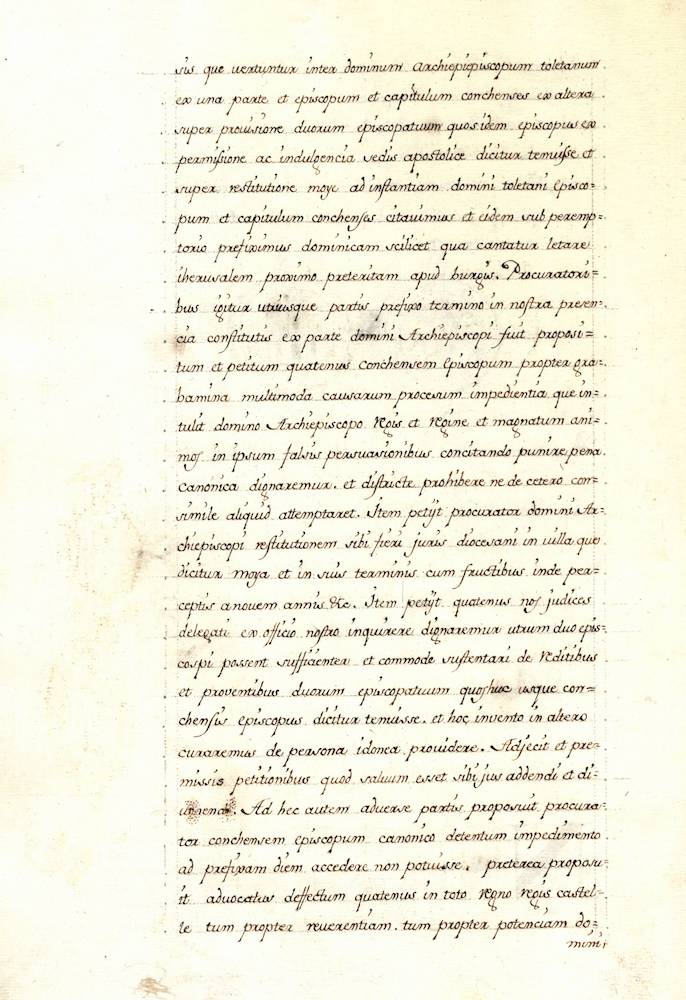 sis que vertuntur inter dominum Archiepiepiscopum toletanum
ex una parte et episcopum et capitulum conchenses ex altera
super provisione duorum episcopatuum quos idem episcopus ex
permisione ac indulgencia sedis apostolice dicitur tenuisse et
super restitutione moye ad instantiam domini toletani Episco=
pum et capitulum conchenses citavimus et eidem sub peremp=
torio prefiximus dominicam scilicet qua cantatur letare
iherusalem proximo preteritam apud burgis. Procuratori=
bus igitur utriusque partis prefixo termino in nostra presen=
cia constitutis ex parte domini Archiepiscopi fuit proposi=
tum et petitum quatenus conchensem Episcopum propter gra=
bamina multimoda causarum procesum impedientia que in=
tulit domino Archiepiscopo Regis et Regine et magnatum ani=
mos in ipsum falsis persuasionibus concitando punire pena
canonica dignaremur. et districte prohibere ne de cetero con=
simile aliquid attemptaret. Item petijt procurator domini Ar=
chiepiscopi restitutionem sibi fieri juris diocesani in villa que
dicitur moya et in suis terminis cum fructibus inde per=
ceptis a novem annis &c. Item petijt quatenus nos judices
delegati ex officio nostro inquirere dignaremur utrum duo epis=
cospi possent sufficienter et commode sustentari de Reditibus
et proventibus duorum episcopatuum quos huc usque con=
chensis episcopus dicitur tenuisse. et hoc invento in altero
curaremus de persona idonea providere. Adjecit et pre=
missis petitionibus quod salvum esset sibi jus addendi et di=
Ad hec autem adverse partis proposuit procura=
tor conchensem episcopum canonico detentum impedimento
ad prefixam diem accedere non potuisse. preterea proposu=
it advocatus deffectum quatenus in toto Regno Regis castel=
le tum propter reverentiam. tum propter potenciam do=
mini